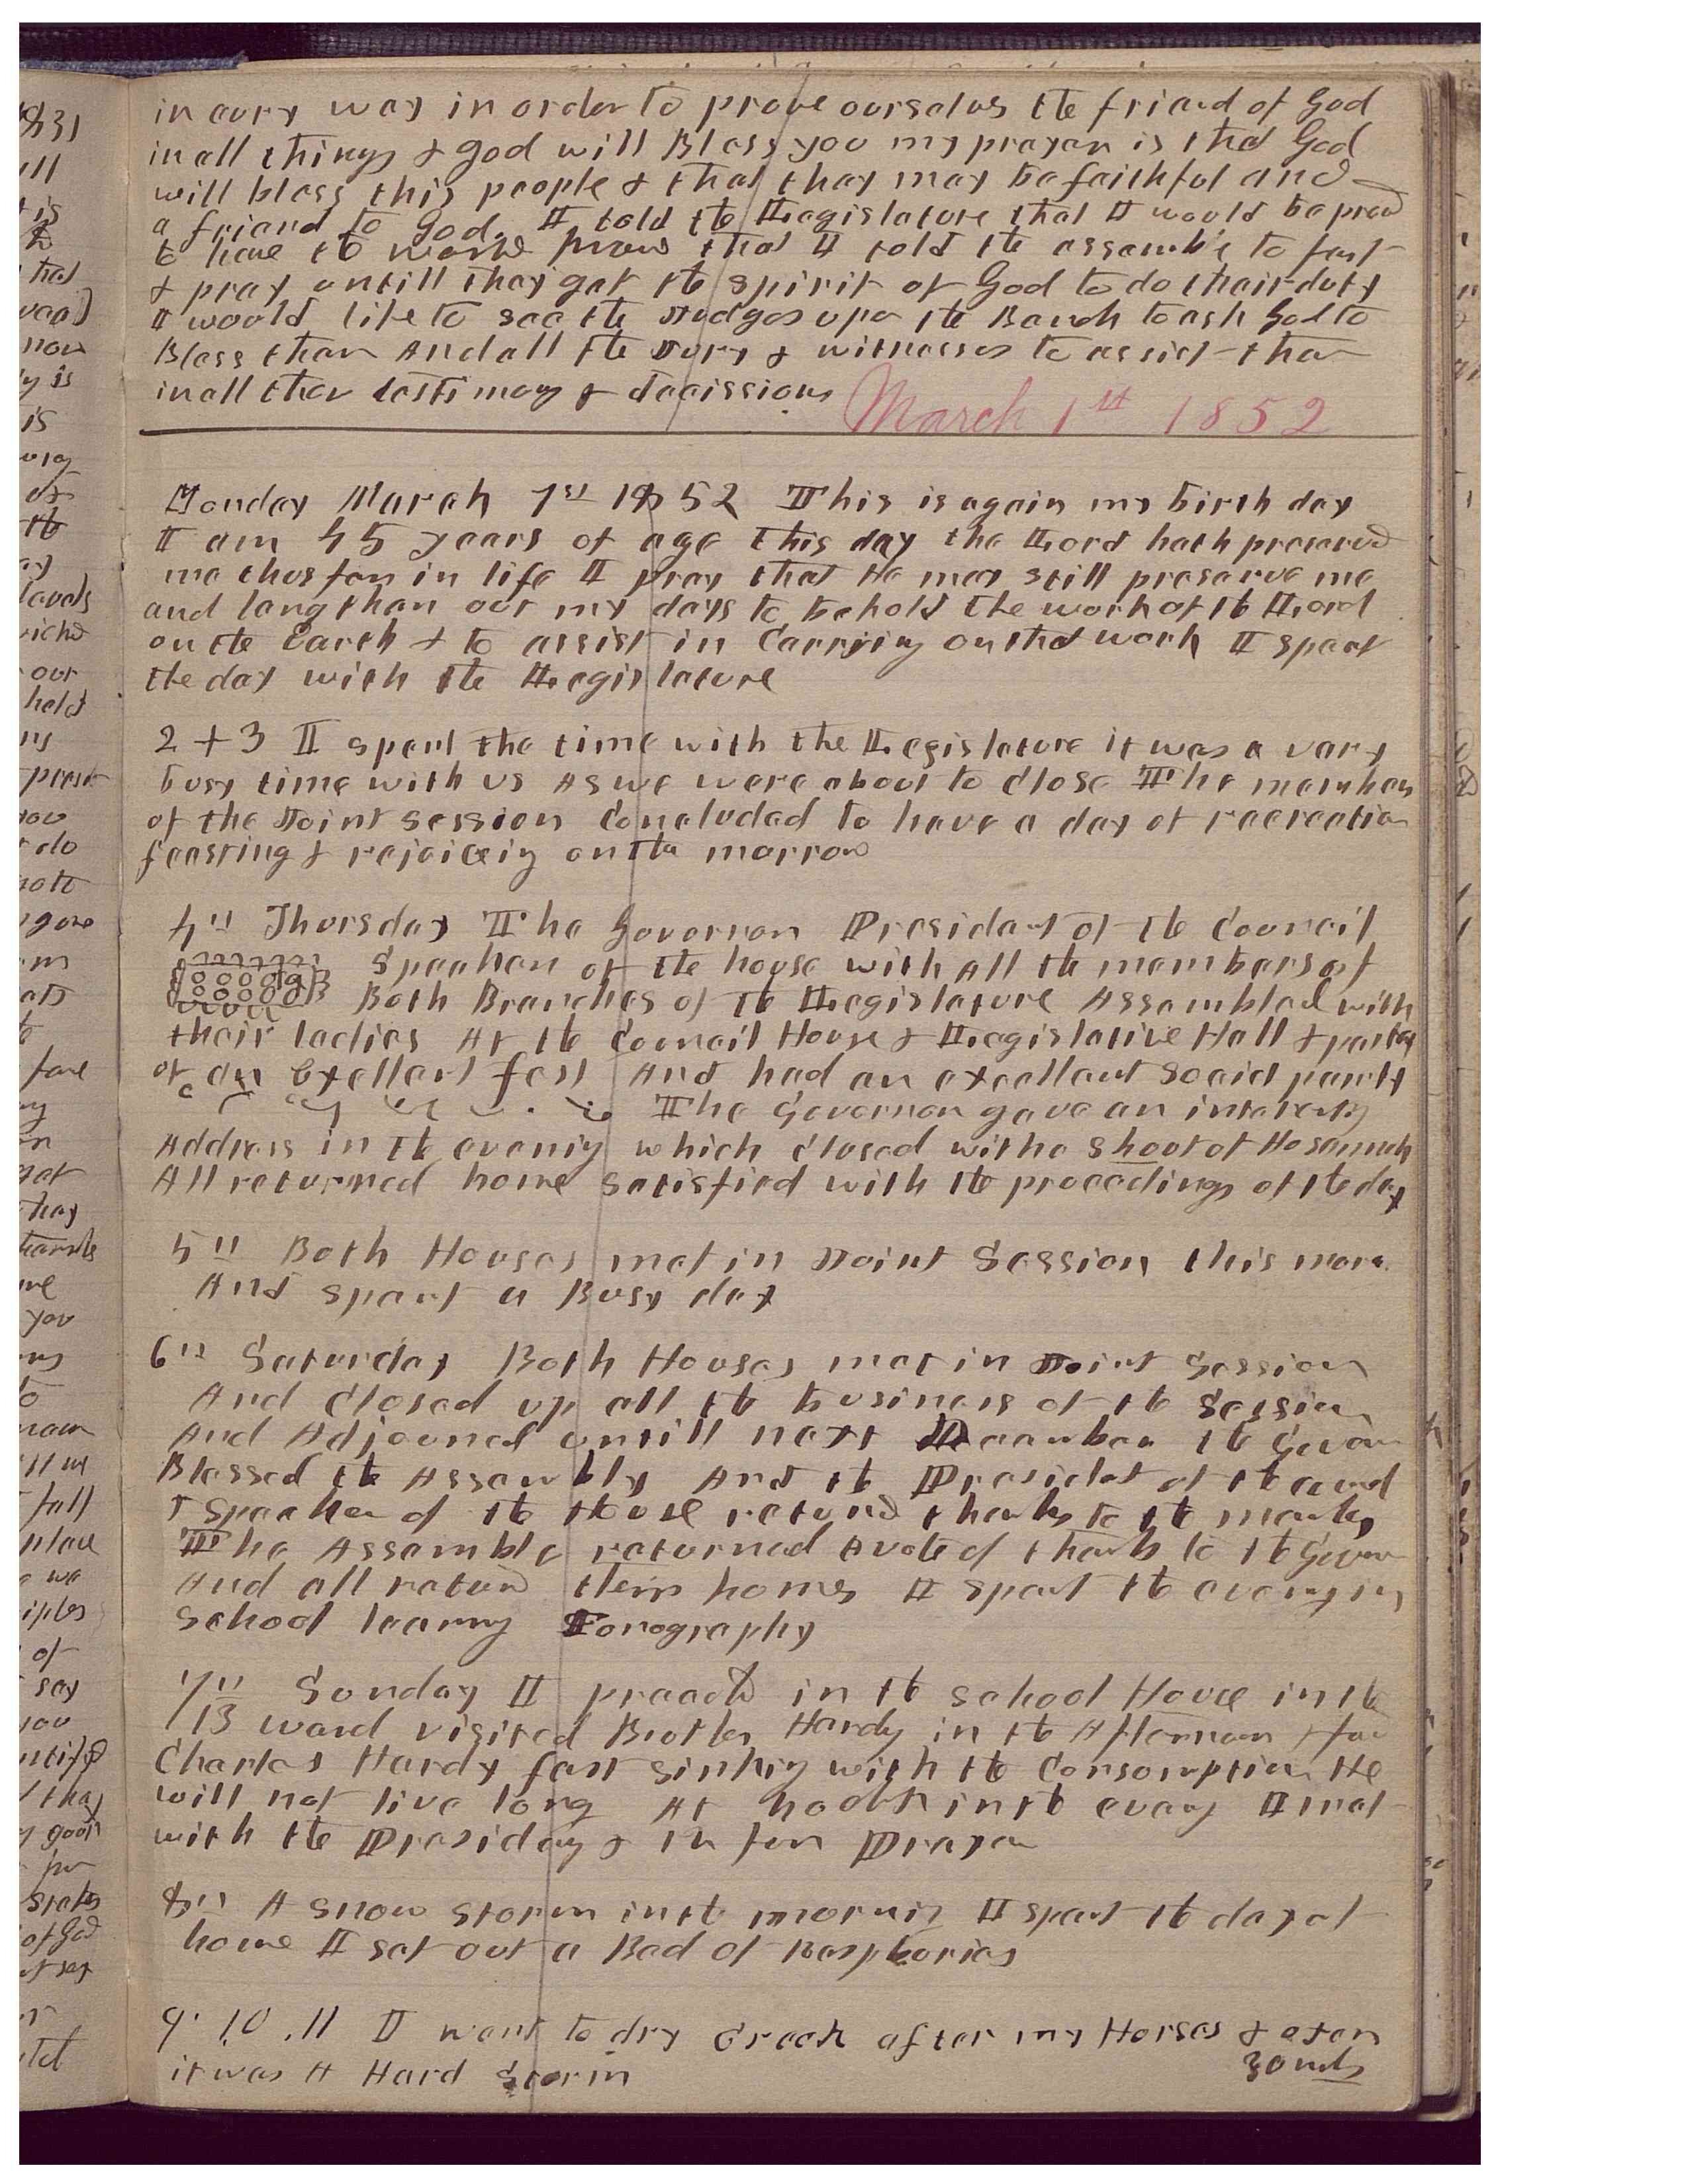 in every way in order to prove ourselves the friend of God
in all things & god will Bless you my prayer is that God
will bless this people & that they may be faithful and
a friend to God. I told the Legislature that I would be proud
to have the world know that I told the assembly to fast
& pray untill they get the spirit of God to do their duty
I would like to see the Judges upon the Bench to ask God to
Bless them And all the Jury & witnesses to assist them
in all their testimony & decissions
March 1st 1852
Monday March 1st 1852 This is again my birth day
I am 45 years of age this day the Lord hath preserved
me thus far in life I pray that He may still preserve me
and lengthen out my days to behold the work of the Lord
on the Earth & to assist in Carrying on that work I spent
the day with the Legislature
2 + 3 I spent the time with the Legislature it was a very
busy time with us As we were about to close The members
of the Joint session Concluded to have a day of recreation
feasting & rejoiceing on the morrow
4" Thursday The Governor President of the Council
Speaker of the house with All the members of
Both Branches of the Legislature Assembled with
their ladies At the Council House & Legislative Hall & partook
of an Exellent fest And had an excellent Social party
The Governor gave an interesting
Address in the evening which closed with a shout of Hosannah
All returned home satisfied with the proceedings of the day
5" Both Houses met in Joint Session this morn.
And spent a Busy day
6" Saturday Both Houses met in Joint Session
And Closed up all the business of the Session
And Adjourned untill next December the Govornor
Blessed the Assembly And the President of the council
& Speaker of the House returnd thanks to the members
The Assembly returned A vote of thanks to the Govornor
And all returnd their homes I spent the evening in
School learning Fonography
7" Sunday I preachd in the school House in the
13 ward visited Brother Hardy in the Afternoon & found
Charles Hardy fast sinking with the Consumption He
will not live long At 6 oclok in the evening I met
with the Presidency & 12 for Prayer
8" A snow storm in the morning I spent the day at
home I set out a Bed of Raspberies
9. 10. 11 I went to dry Creek after my Horses & oxen
it was A Hard Storm
30 mls